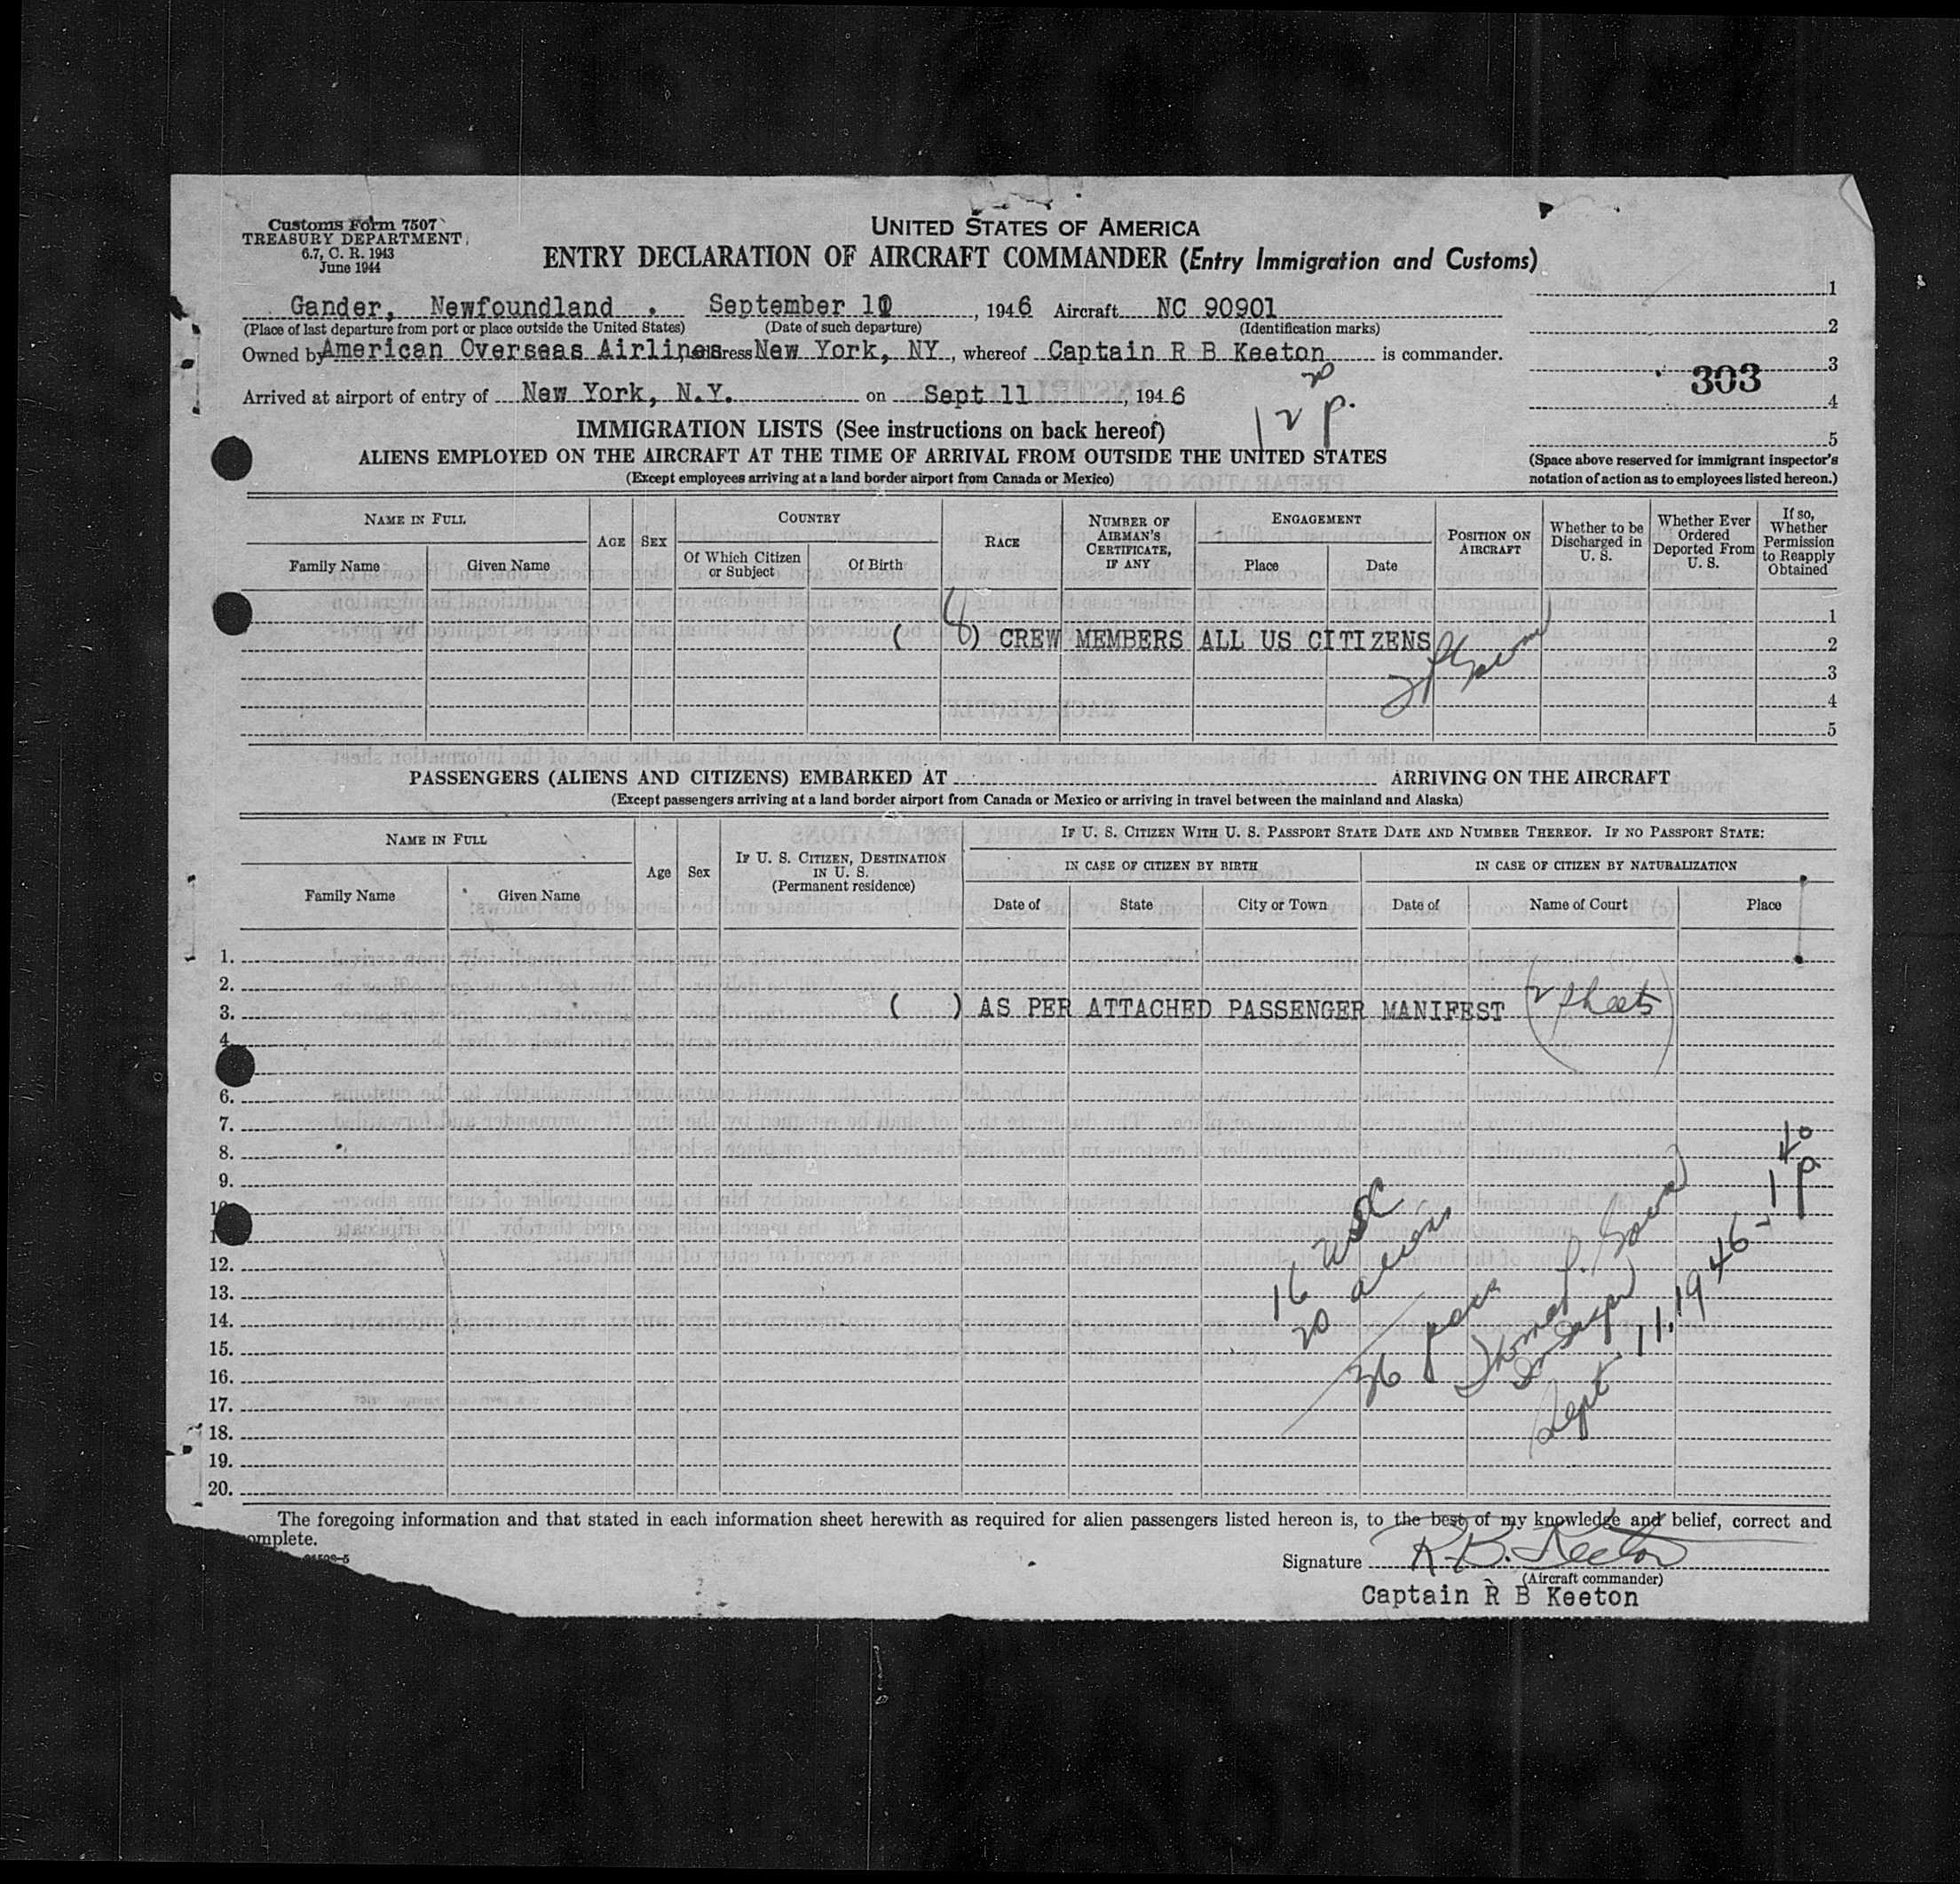 Customs Form 7507
TREASURY DEPARTMENT
6.7, C. R. 1943
June 1944
UNITED STATES OF AMERICA
ENTRY DECLARATION OF AIRCRAFT COMMANDER (Entry Immigration and Customs)
Gander, Newfoundland . September 10, 1946 Aircraft NC 90901
(Place of last departure from port or place outside the United States) (Date of such departure) (Identification marks)
Owned by American Overseas Airlines Address New York, NY, whereof Captain R B Keeton is commander.
Arrived at airport of entry of New York, N.Y. on Sept 11, 1946
12 20 p.
1
2
3
303
4
5
(Space above reserved for immigrant inspector's
notation of action as to employees listed hereon.)
IMMIGRATION LISTS (See instructions on back hereof)
ALIENS EMPLOYED ON THE AIRCRAFT AT THE TIME OF ARRIVAL FROM OUTSIDE THE UNITED STATES
(Except employees arriving at a land border airport from Canada or Mexico)
NAME IN FULL
Family Name Given Name
AGE SEX
COUNTRY
Of Which Citizen or Subject
Of Birth
RACE
NUMBER OF AIRMAN'S CERTIFICATE, IF ANY
ENGAGEMENT
Place Date
POSITION ON AIRCRAFT
Whether to be Discharged in U. S.
Whether Ever Ordered Deported From U. S.
If so, Whether Permission to Reapply Obtained
1
( 8 ) CREW MEMBERS ALL US CITIZENS 2
3
4
5
PASSENGERS (ALIENS AND CITIZENS) EMBARKED AT ARRIVING ON THE AIRCRAFT
(Except passengers arriving at a land border airport from Canada or Mexico or arriving in travel between the mainland and Alaska)
NAME IN FULL
Family Name Given Name
Age Sex
IF U. S. CITIZEN, DESTINATION IN U. S. (Permanent residence)
IF U. S. CITIZEN WITH U. S. PASSPORT STATE DATE AND NUMBER THEREOF. IF NO PASSPORT STATE:
IN CASE OF CITIZEN BY BIRTH
IN CASE OF CITIZEN BY NATURALIZATION
Date of State City or Town Date of Name of Court Place
1.
2.
3. ( ) AS PER ATTACHED PASSENGER MANIFEST (2 sheets)
4.
6.
7.
8.
9.
10
1
12.
13.
14.
15.
16.
17.
18.
19.
20.
16 USC
20 aliens
36 pass
Thomas J.
Im Insp
Sept. 11, 1946 - 1 40 p
The foregoing information and that stated in each information sheet herewith as required for alien passengers listed hereon is, to the best of my knowledge and belief, correct and
omplete.
Signature R.B. Keeton
(Aircraft commander)
Captain R B Keeton